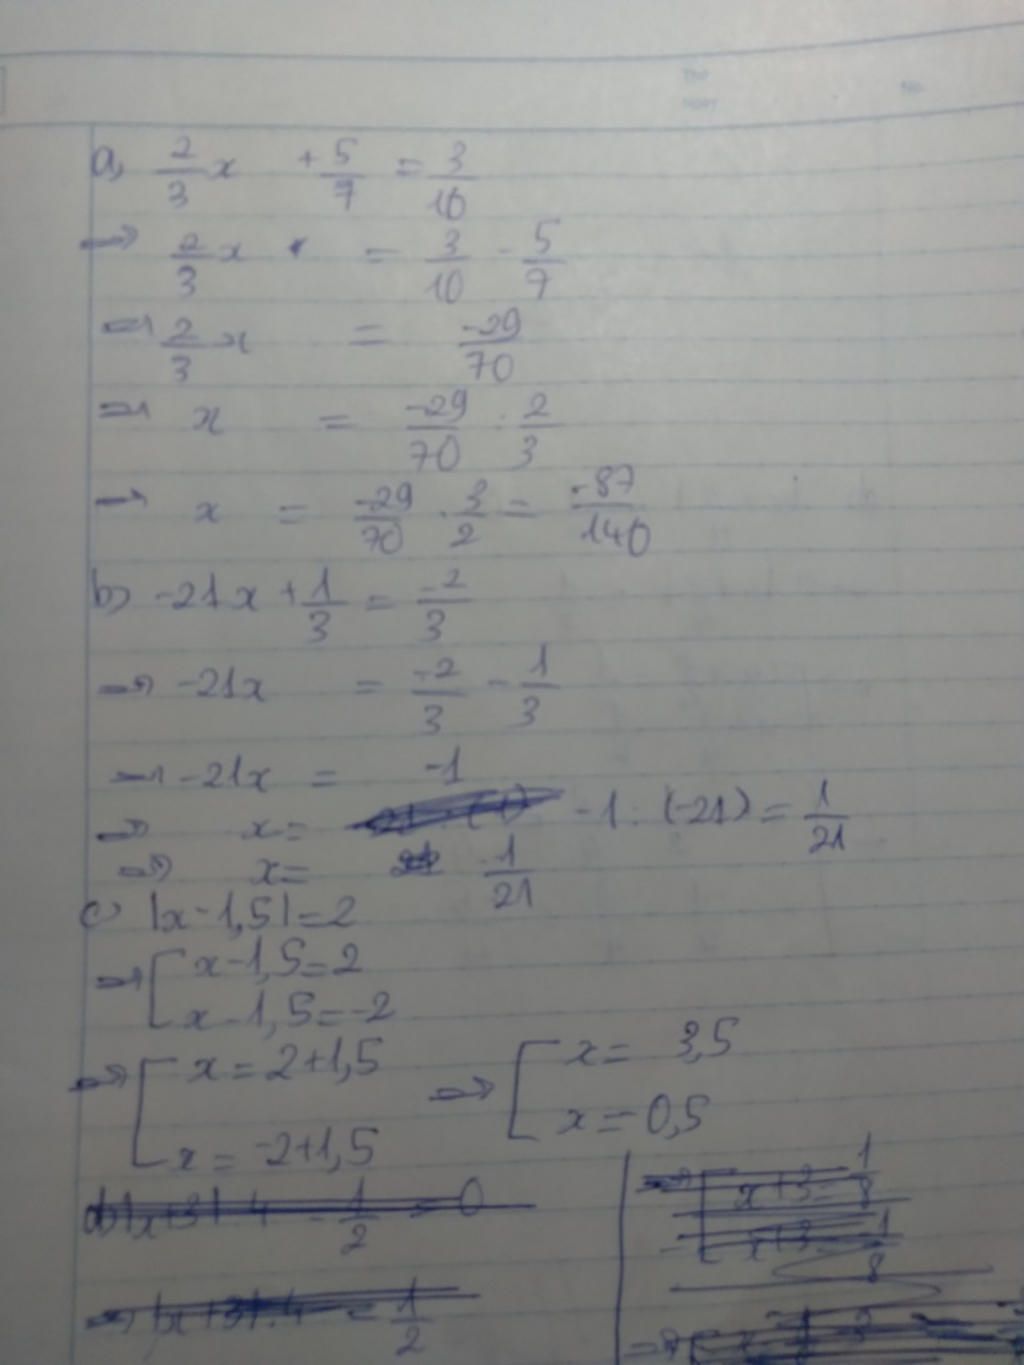 Thứ
Ngày
No.
a, 2/3 x + 5/7 = 3/10
=> 2/3 x = 3/10 - 5/7
=> 2/3 x = -29/70
=> x = -29/70 : 2/3
=> x = -29/70 . 3/2 = -87/140
b) -21x + 1/3 = -2/3
=> -21x = -2/3 - 1/3
=> -21x = -1
=> x = -1 : (-21) = 1/21
=> x = 1/21
c) |x - 1,5| = 2
=> [ x - 1,5 = 2
x - 1,5 = -2
=> [ x = 2 + 1,5 => [ x = 3,5
x = -2 + 1,5 x = -0,5
d) |x+3| . 4 - 1/2 = 0
=> |x+3| . 4 = 1/2
=> [ x+3 = 1/8
x+3 = -1/8